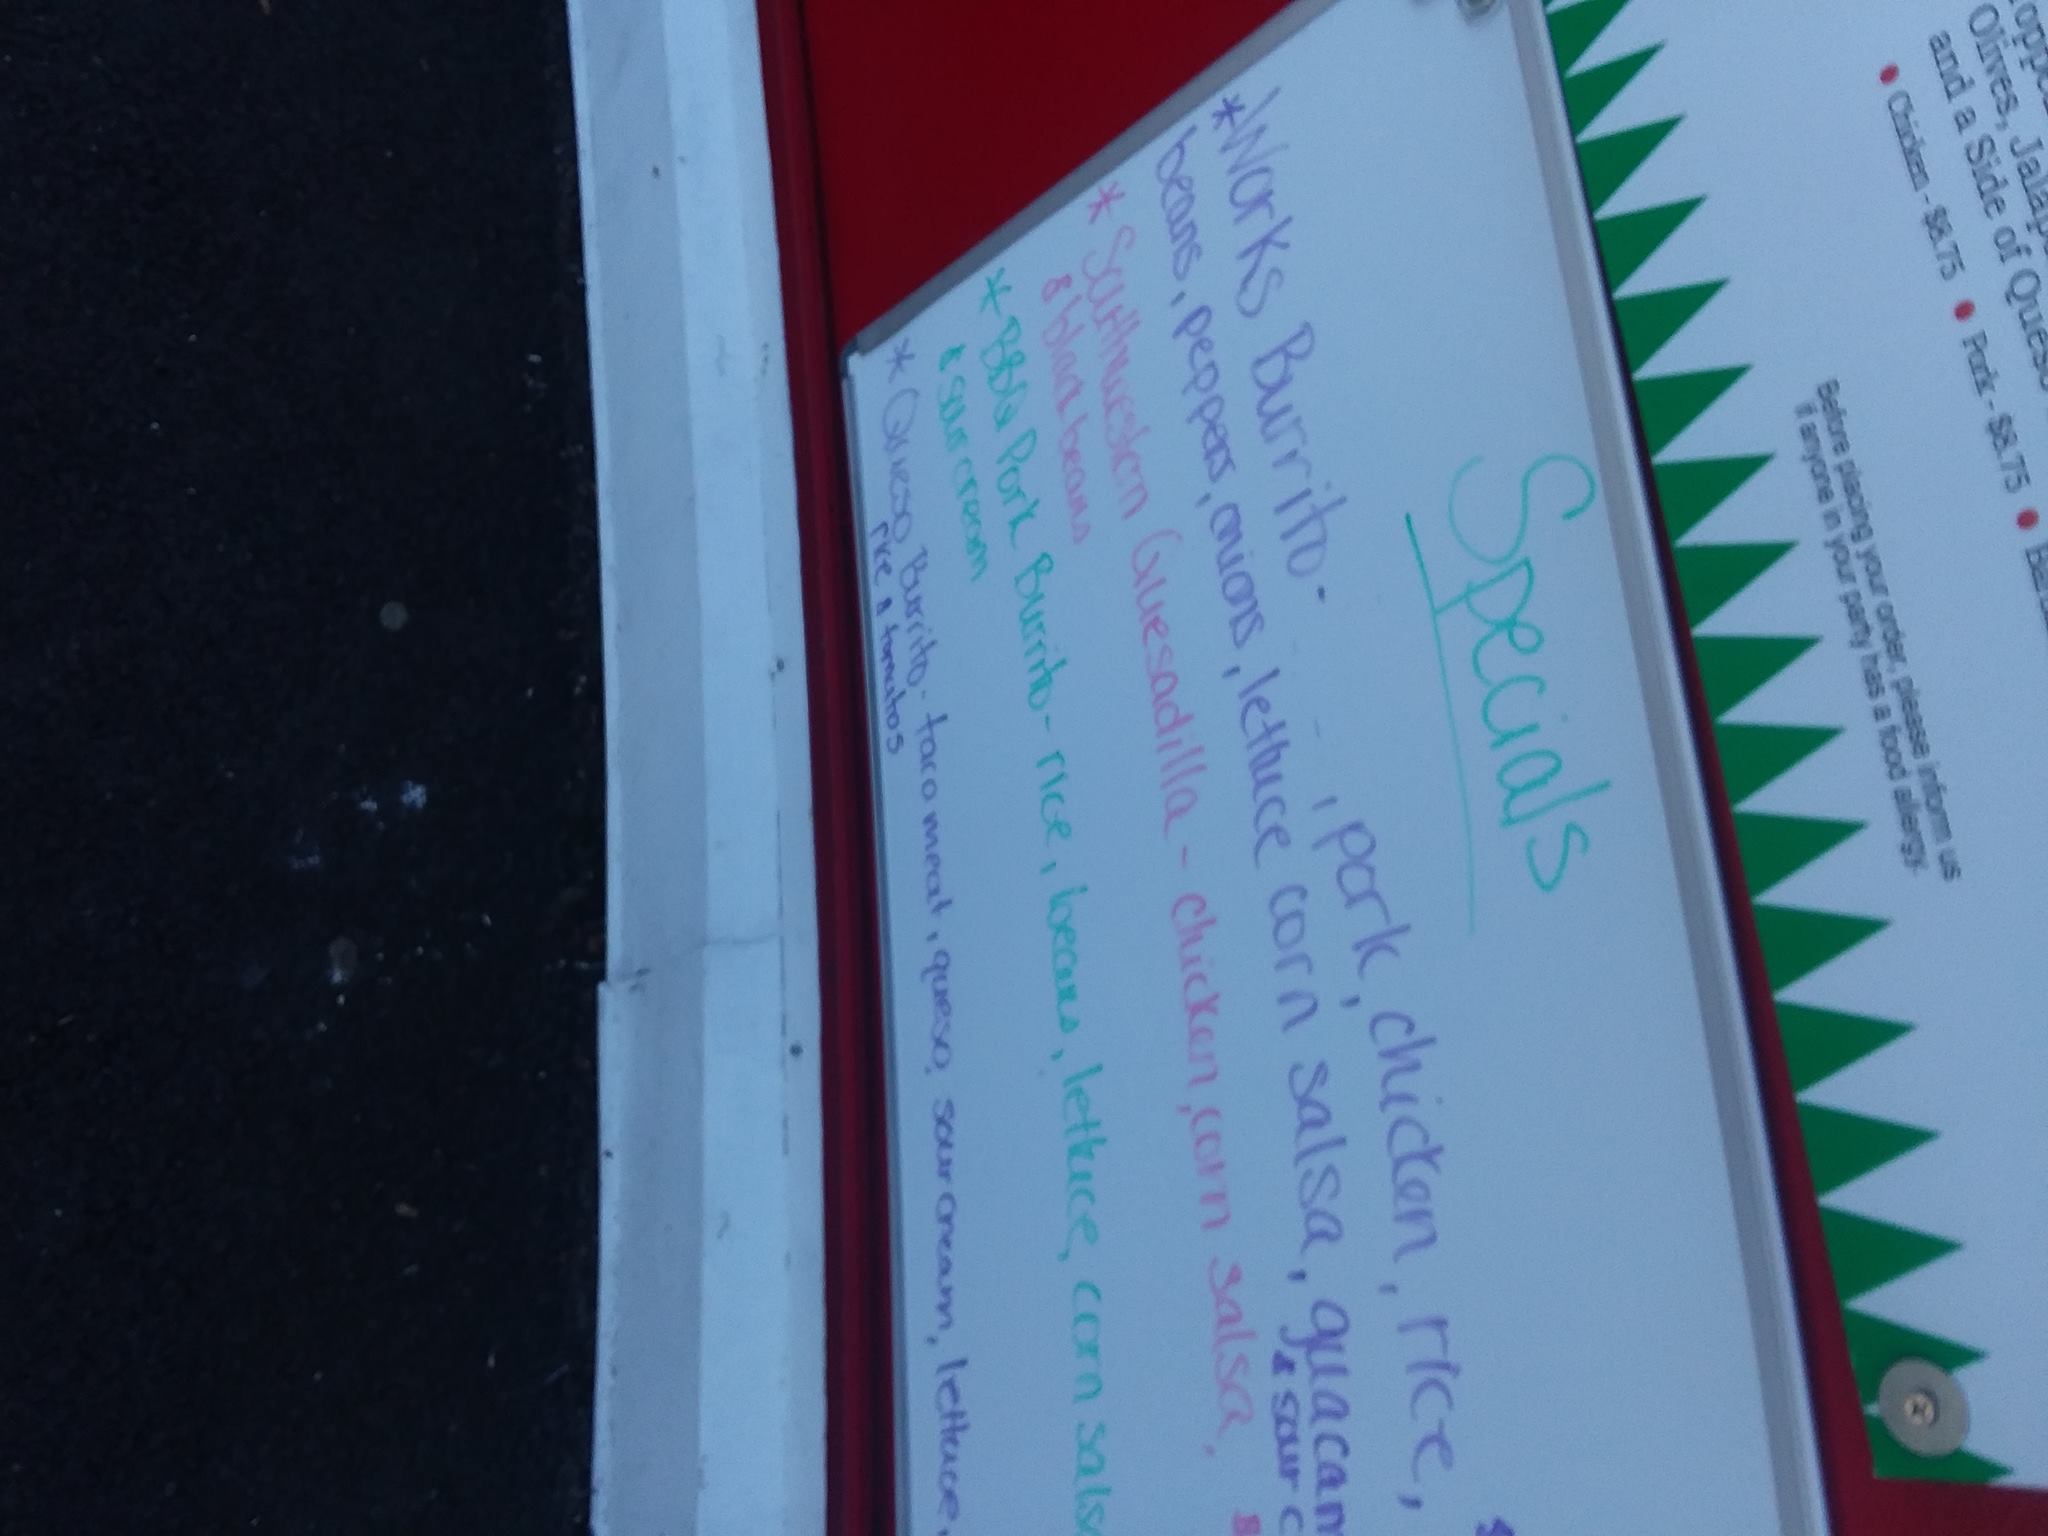 Olives, Jalap
and a Side of Queso
• Chicken - $8.75 • Pork - $8.75 •
Before placing your order, please inform us
if anyone in your party has a food allergy.
Specials
*Works Burrito- , pork, chicken, rice,
beans, peppers, onions, lettuce corn salsa, guacam
& sour c
* Southwestern Quesadilla - chicken, corn salsa,
& black beans
* BBQ Pork Burrito - rice, beans, lettuce, corn salsa
& sour cream
* Queso Burrito - taco meat, queso, sour cream, lettuce,
rice & tomatos